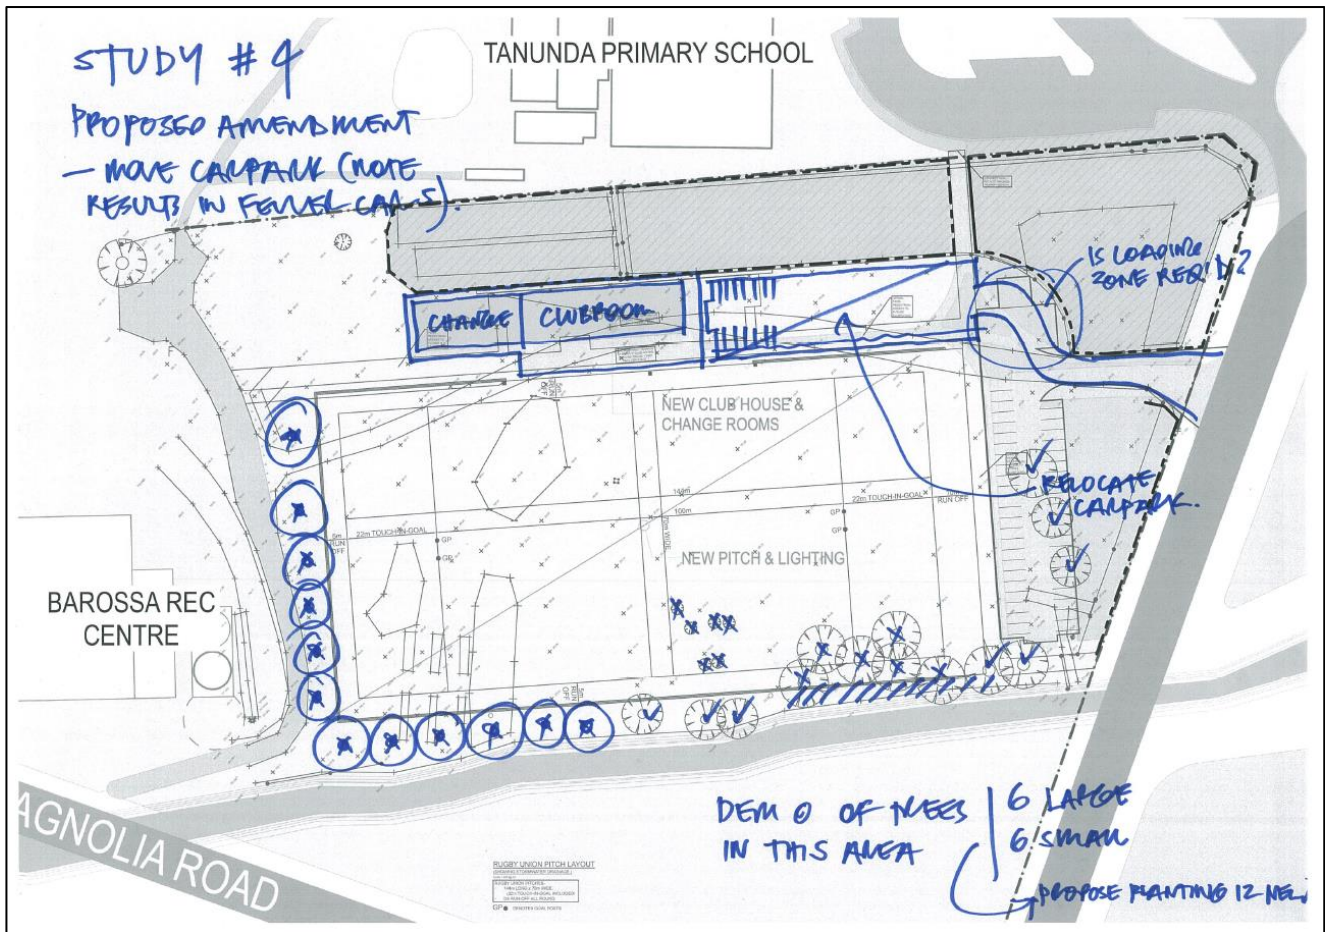 STUDY # 4
PROPOSED AMENDMENT
— MOVE CARPARK (NOTE
RESULTS IN FEWER CARS).
TANUNDA PRIMARY SCHOOL
IS LOADING
ZONE REQ'D?
CHANGE
CLUBROOM
NEW CLUB HOUSE &
CHANGE ROOMS
148m
100m
22m TOUCH-IN-GOAL
RUN OFF
5m
RUN
OFF
22m TOUCH-IN-GOAL
GP
GP
GP
GP
70m WIDE
RELOCATE
CARPARK.
NEW PITCH & LIGHTING
BAROSSA REC
CENTRE
5m
RUN
OFF
AGNOLIA ROAD
DEMO OF TREES
IN THIS AREA
6 LARGE
6 SMALL
PROPOSE PLANTING 12 NEW
RUGBY UNION PITCH LAYOUT
GP